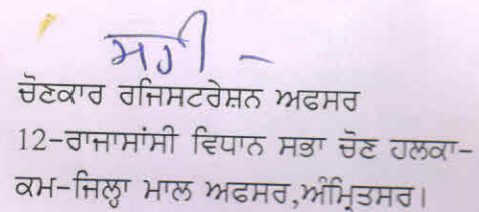 ਸਹੀ -
ਚੋਣਕਾਰ ਰਜਿਸਟਰੇਸ਼ਨ ਅਫਸਰ
12-ਰਾਜਾਸਾਂਸੀ ਵਿਧਾਨ ਸਭਾ ਚੋਣ ਹਲਕਾ-
ਕਮ-ਜਿਲ੍ਹਾ ਮਾਲ ਅਫਸਰ,ਅੰਮ੍ਰਿਤਸਰ।